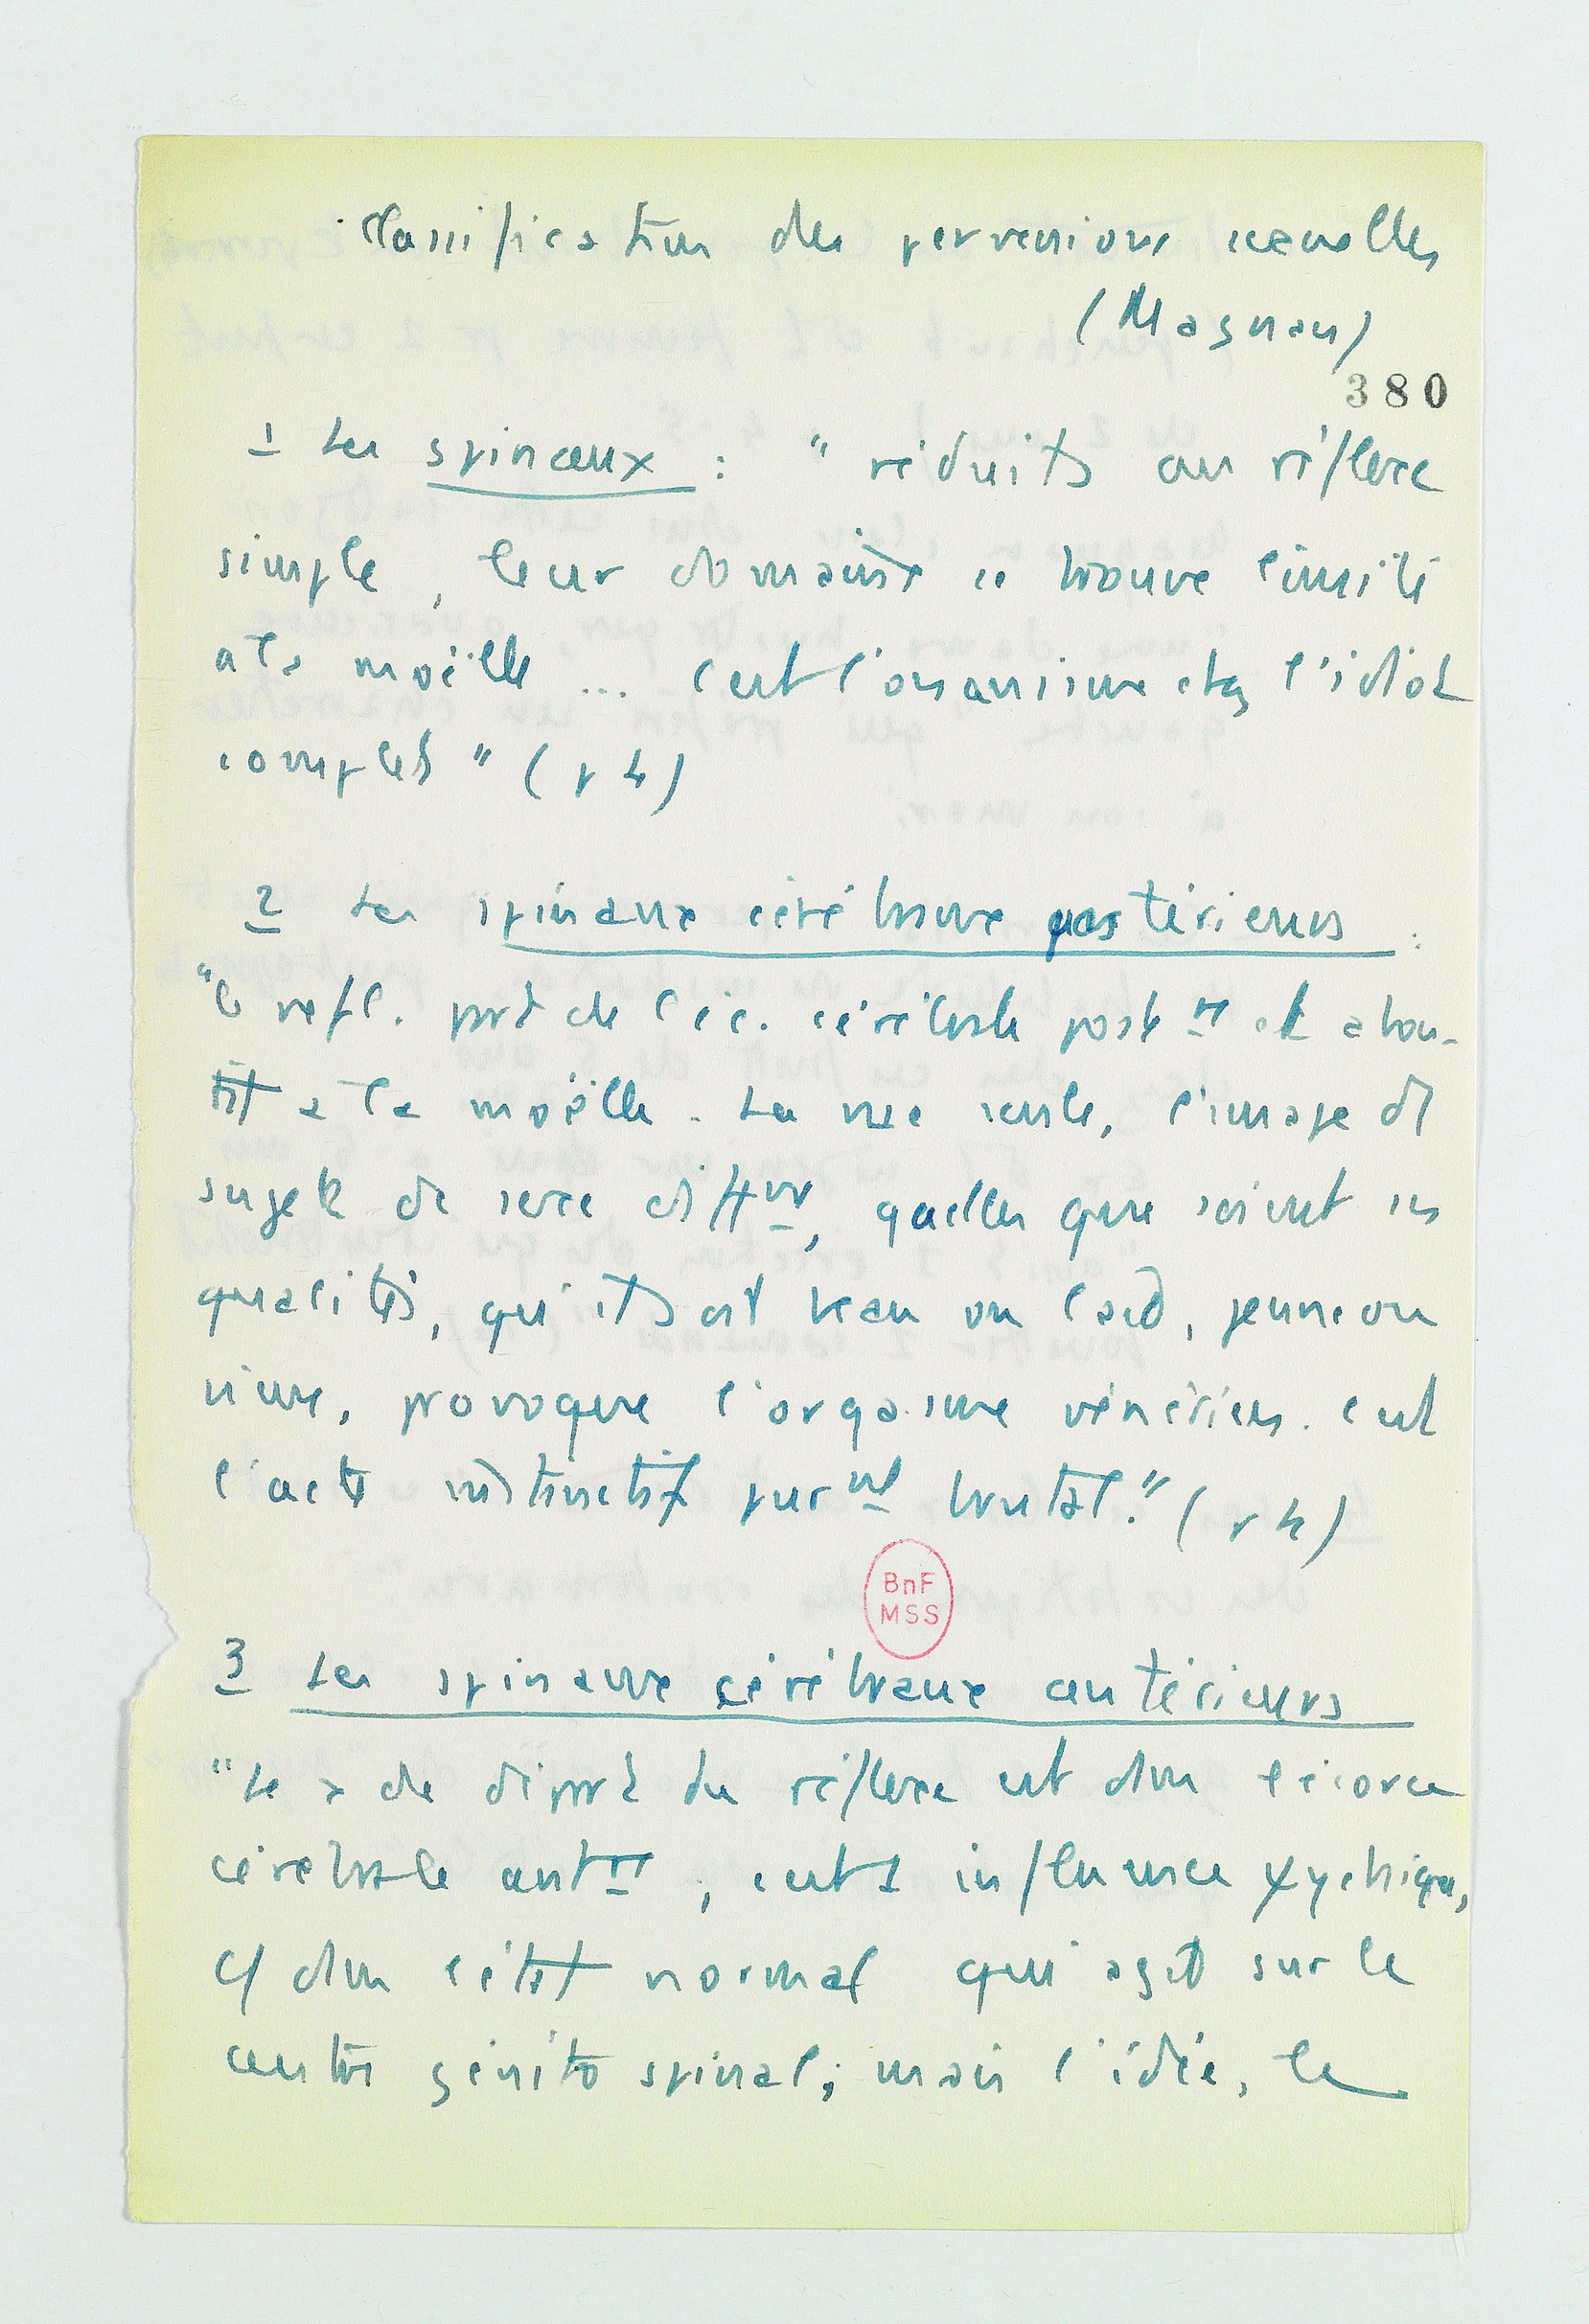 Classification des perversions sexuelles
(Magnan)
380
1 Les spinaux : " réduits au réflexe
simple, leur domaine se trouve limité
à la moëlle ... C'est l'onanisme chez l'idiot
complet " (p 4)
2 Les spinaux cérébraux postérieurs :
"le refl. part de l'éc. cérébrale post re et abou-
tit à la moëlle. La vue seule, l'image d'1
sujet de sexe difft, quelles que soient ses
qualités, qu'il soit beau ou laid, jeune ou
vieux, provoque l'orgasme vénérien. C'est
l'acte instinctif pur nt brutal." (p 4)
BnF
MSS
3 Les spinaux cérébraux antérieurs
"Le de départ du réflexe est dns l'écorce
cérébrale ant re ; c'est 1 influence psychique,
c/ dns l'état normal qui agit sur le
centre génito spinal ; mais l'idée, le